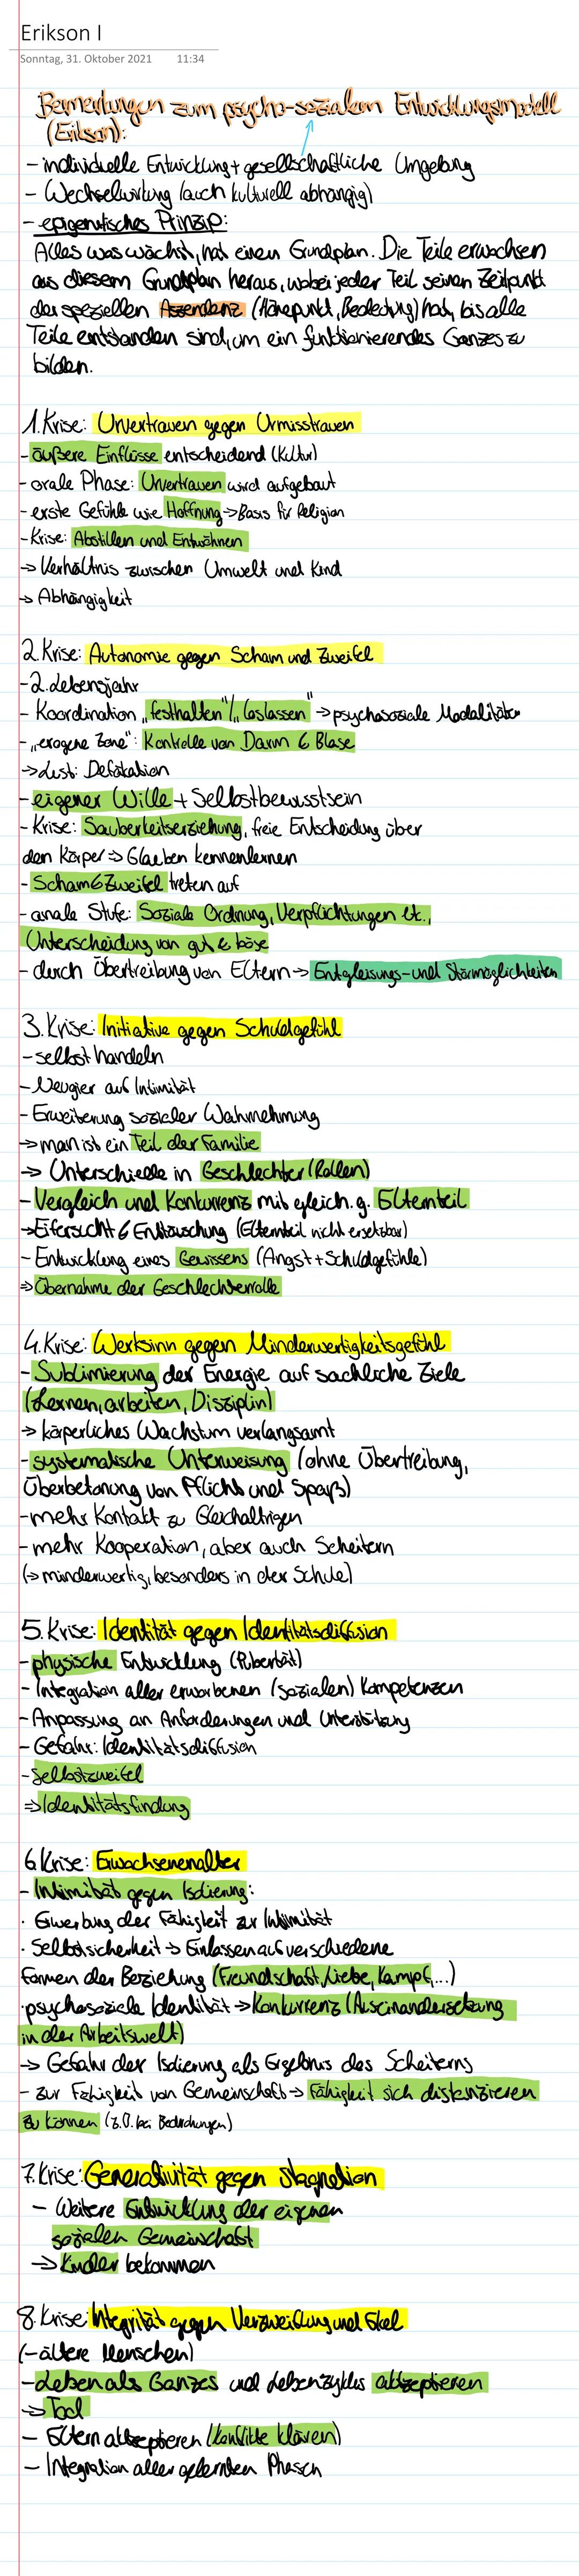 Erikson I
Sonntag, 31. Oktober 2021 11:34
Bemerkungen zum psycho-sozialem Entwicklungsmodell
(Erikson):
- individuelle Entwicklung + gesellschaftliche Umgebung
- Wechselwirkung (auch kulturell abhängig)
- epigenetisches Prinzip:
Alles was wächst, hat einen Grundplan. Die Teile erwachsen
aus diesem Grundplan heraus, wobei jeder Teil seinen Zeitpunkt
der speziellen Aszendenz (Höhepunkt, Bedeutung) hat, bis alle
Teile entstanden sind, um ein funktionierendes Ganzes zu
bilden.
1. Krise: Urvertrauen gegen Urmisstrauen
- äußere Einflüsse entscheidend (Kultur)
- orale Phase: Urvertrauen wird aufgebaut
- erste Gefühle wie Hoffnung -> Basis für Religion
- Krise: Abstillen und Entwöhnen
-> Verhältnis zwischen Umwelt und Kind
-> Abhängigkeit
2. Krise: Autonomie gegen Scham und Zweifel
- 2. Lebensjahr
- Koordination „festhalten"/„loslassen" -> psychosoziale Modalitäten
- „erogene Zone": Kontrolle von Darm & Blase
-> Lust: Defäkation
- eigener Wille + Selbstbewusstsein
- Krise: Sauberkeitserziehung, freie Entscheidung über
den Körper => Glauben kennenlernen
- Scham & Zweifel treten auf
- anale Stufe: Soziale Ordnung, Verpflichtungen etc.,
Unterscheidung von gut & böse
- durch Übertreibung von Eltern -> Entgleisungs- und Störmöglichkeiten
3. Krise: Initiative gegen Schuldgefühl
- selbst handeln
- Neugier auf Intimität
- Erweiterung sozialer Wahrnehmung
-> man ist ein Teil der Familie
-> Unterschiede in Geschlechter (Rollen)
- Vergleich und Konkurrenz mit gleich.g. Elternteil
-> Eifersucht & Enttäuschung (Elternteil nicht ersetzbar)
- Entwicklung eines Gewissens (Angst + Schuldgefühle)
=> Übernahme der Geschlechterrolle
4. Krise: Werksinn gegen Minderwertigkeitsgefühl
- Sublimierung der Energie auf sachliche Ziele
(Lernen, arbeiten, Disziplin)
-> körperliches Wachstum verlangsamt
- systematische Unterweisung (ohne Übertreibung,
Überbetonung von Pflicht und Spaß)
- mehr Kontakt zu Gleichaltrigen
- mehr Kooperation, aber auch Scheitern
(-> minderwertig, besonders in der Schule)
5. Krise: Identität gegen Identitätsdiffusion
- physische Entwicklung (Pubertät)
- Integration aller erworbenen (sozialen) Kompetenzen
- Anpassung an Anforderungen und Unterstützung
- Gefahr: Identitätsdiffusion
- Selbstzweifel
=> Identitätsfindung
6. Krise: Erwachsenenalter
- Intimität gegen Isolierung:
· Erwerbung der Fähigkeit zur Intimität
· Selbstsicherheit -> Einlassen auf verschiedene
Formen der Beziehung (Freundschaft, Liebe, Kampf, ...)
· psychosoziale Identität -> Konkurrenz (Auseinandersetzung
in der Arbeitswelt)
-> Gefahr der Isolierung als Ergebnis des Scheiterns
- zur Fähigkeit von Gemeinschaft -> Fähigkeit sich distanzieren
zu können (z.B. bei Bedrohungen)
7. Krise: Generativität gegen Stagnation
- Weitere Entwicklung der eigenen
sozialen Gemeinschaft
-> Kinder bekommen
8. Krise: Integrität gegen Verzweiflung und Ekel
(- ältere Menschen)
- Leben als Ganzes und Lebenzyklus akzeptieren
-> Tod
- Eltern akzeptieren (Konflikte klären)
- Integration aller gelernten Phasen